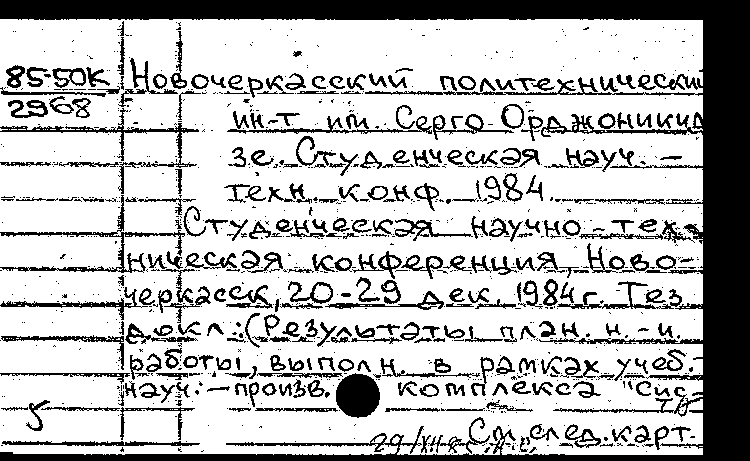 85-50К Новочеркасский политехнический
2968 ин-т им. Серго Орджоникид
зе. Студенческая науч. -
техн. конф. 1984.
Студенческая научно-тех
ническая конференция, Ново-
черкасск, 20-29 дек. 1984 г. Тез.
докл.: (Результаты план. н.-и.
работы, выполн. в рамках учеб.-
науч.-произв. комплекса "Сис
5
См. след. карт.